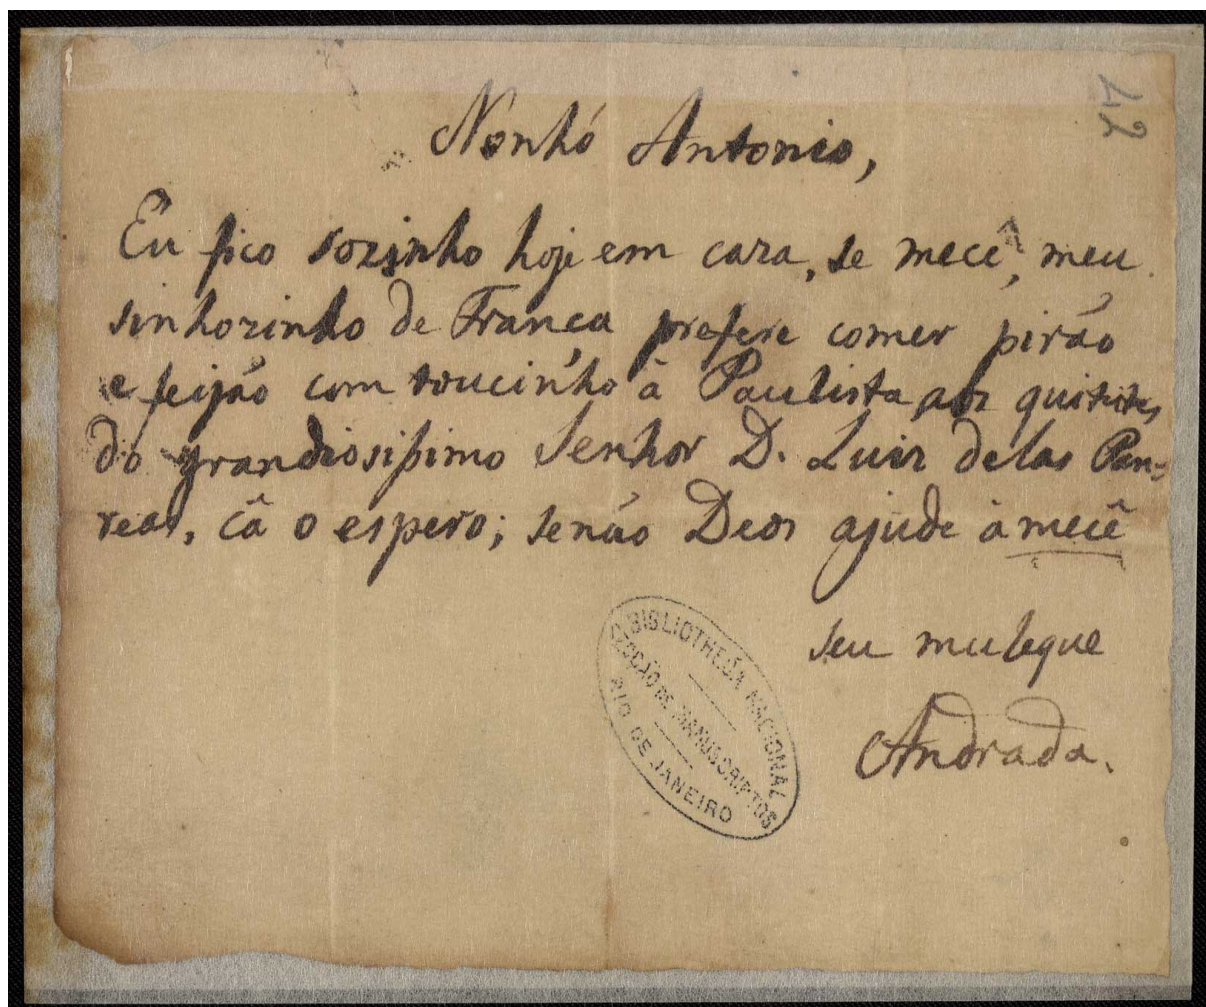 42
Nonhó Antonio,
Eu fico sozinho hoje em caza, se mecê, meu
sinhozinho de França prefere comer pirão
e feijão com toucinho à Paulista aos quitutes
do grandiosissimo Senhor D. Luiz de las Pan-
reas, câ o espero; senão Deos ajude à mecê
seu muleque
Andrada.
BIBLIOTHECA NACIONAL
SECÇÃO DE MANUSCRIPTOS
RIO DE JANEIRO